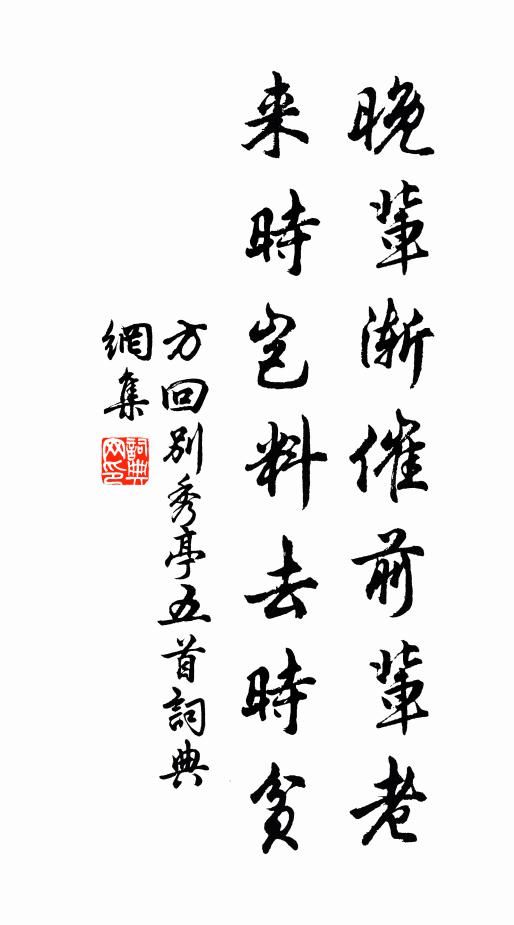 晚輩漸催前輩老
来時豈料去時貧
方回別秀亭五首詞典
網集
詞典網印